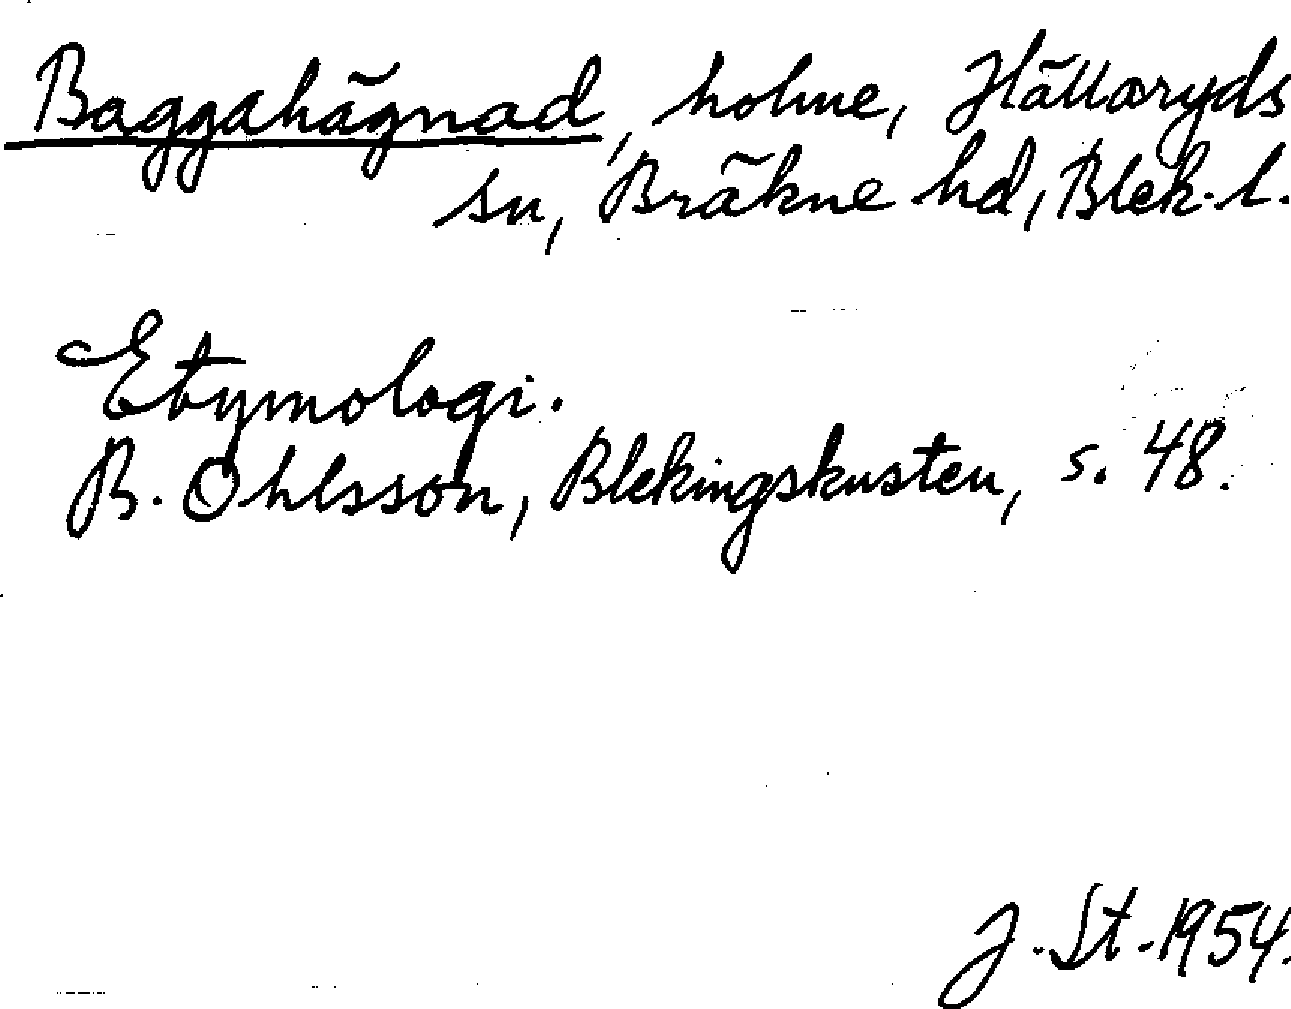 Baggahägnad, holme, Hällaryds
sn, Bräkne hd, Blek. l.
Etymologi.
B. Ohlsson, Blekingskusten, s. 48.
J. St. 1954.